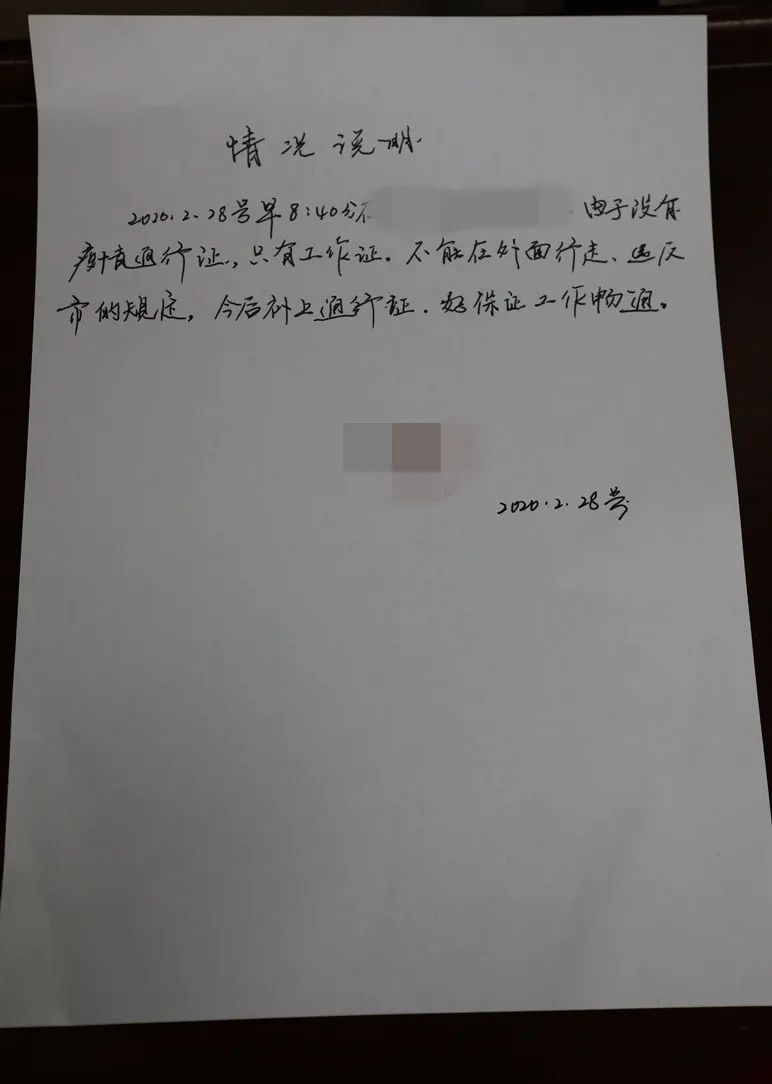 情况说明
2020.2.28号早8:40分 由于没有
通行证,只有工作证。不能在外面行走、违反
市的规定,今后补上通行证.好保证工作畅通。
2020.2.28号